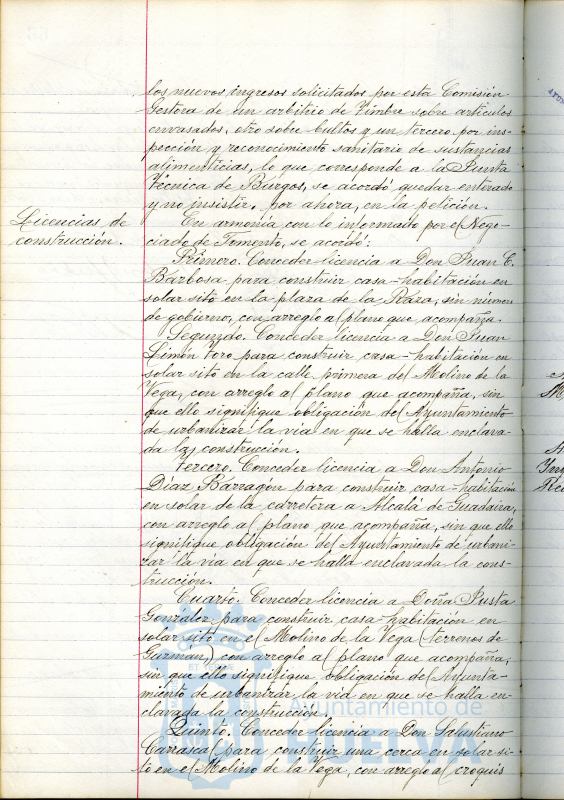 los nuevos ingresos solicitados por esta Comisión
Gestora de un arbitrio de Timbre sobre artículos
envasados, otro sobre bultos y un tercero por ins-
pección y reconocimiento sanitario de sustancias
alimenticias, lo que corresponde a la Junta
Técnica de Burgos, se acordó quedar enterado
y no insistir, por ahora, en la petición.
Licencias de
construcción.
En armonía con lo informado por el Nego-
ciado de Fomento, se acordó:
Primero. Conceder licencia a Don Juan C.
Barbosa para construir casa-habitación en
solar sito en la plaza de la Raza, sin número
de gobierno, con arreglo al plano que acompaña.
Segundo. Conceder licencia a Don Juan
Limón Toro para construir casa-habitación en
solar sito en la calle primera del Molino de la
Vega, con arreglo al plano que acompaña, sin
que ello signifique obligación del Ayuntamiento
de urbanizar la vía en que se halla enclava-
da la construcción.
Tercero. Conceder licencia a Don Antonio
Díaz Barragón para construir casa-habitación
en solar de la carretera a Alcalá de Guadaira,
con arreglo al plano que acompaña, sin que ello
signifique obligación del Ayuntamiento de urbani-
zar la vía en que se halla enclavada la cons-
trucción.
Cuarto. Conceder licencia a Doña Justa
González para construir casa-habitación en
solar sito en el Molino de la Vega (terrenos de
Guzmán,) con arreglo al plano que acompaña,
sin que ello signifique obligación del Ayunta-
miento de urbanizar la vía en que se halla en-
clavada la construcción.
Quinto. Conceder licencia a Don Salustiano
Carrascal para construir una cerca en solar si-
to en el Molino de la Vega, con arreglo al croquis
Ayuntamiento de
HUELVA